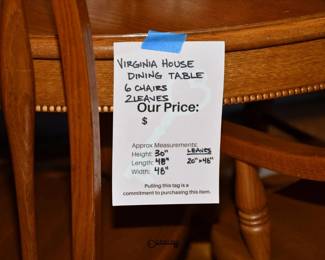 VIRGINIA HOUSE
DINING TABLE
6 CHAIRS
2 LEAVES
Our Price:
$
Approx Measurements:
Height: 30"
Length: 48"
Width: 48"
LEAVES
20" x 48"
Pulling this tag is a
commitment to purchasing this item.